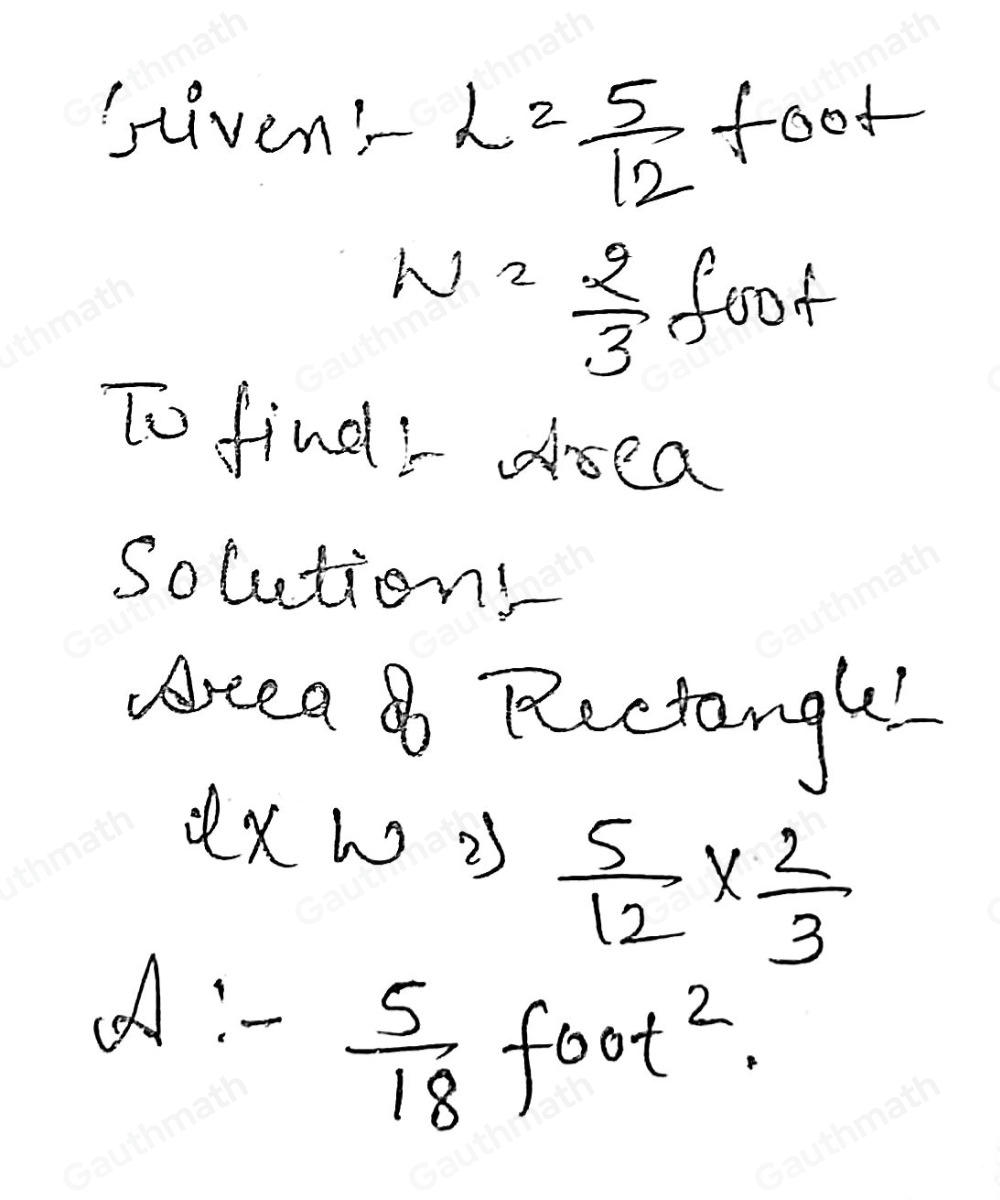 Given:- L = 5/12 foot
W = 2/3 foot
To find:- Area
Solution:-
Area of Rectangle:-
l x w => 5/12 x 2/3
A :- 5/18 foot².
Gauthmath